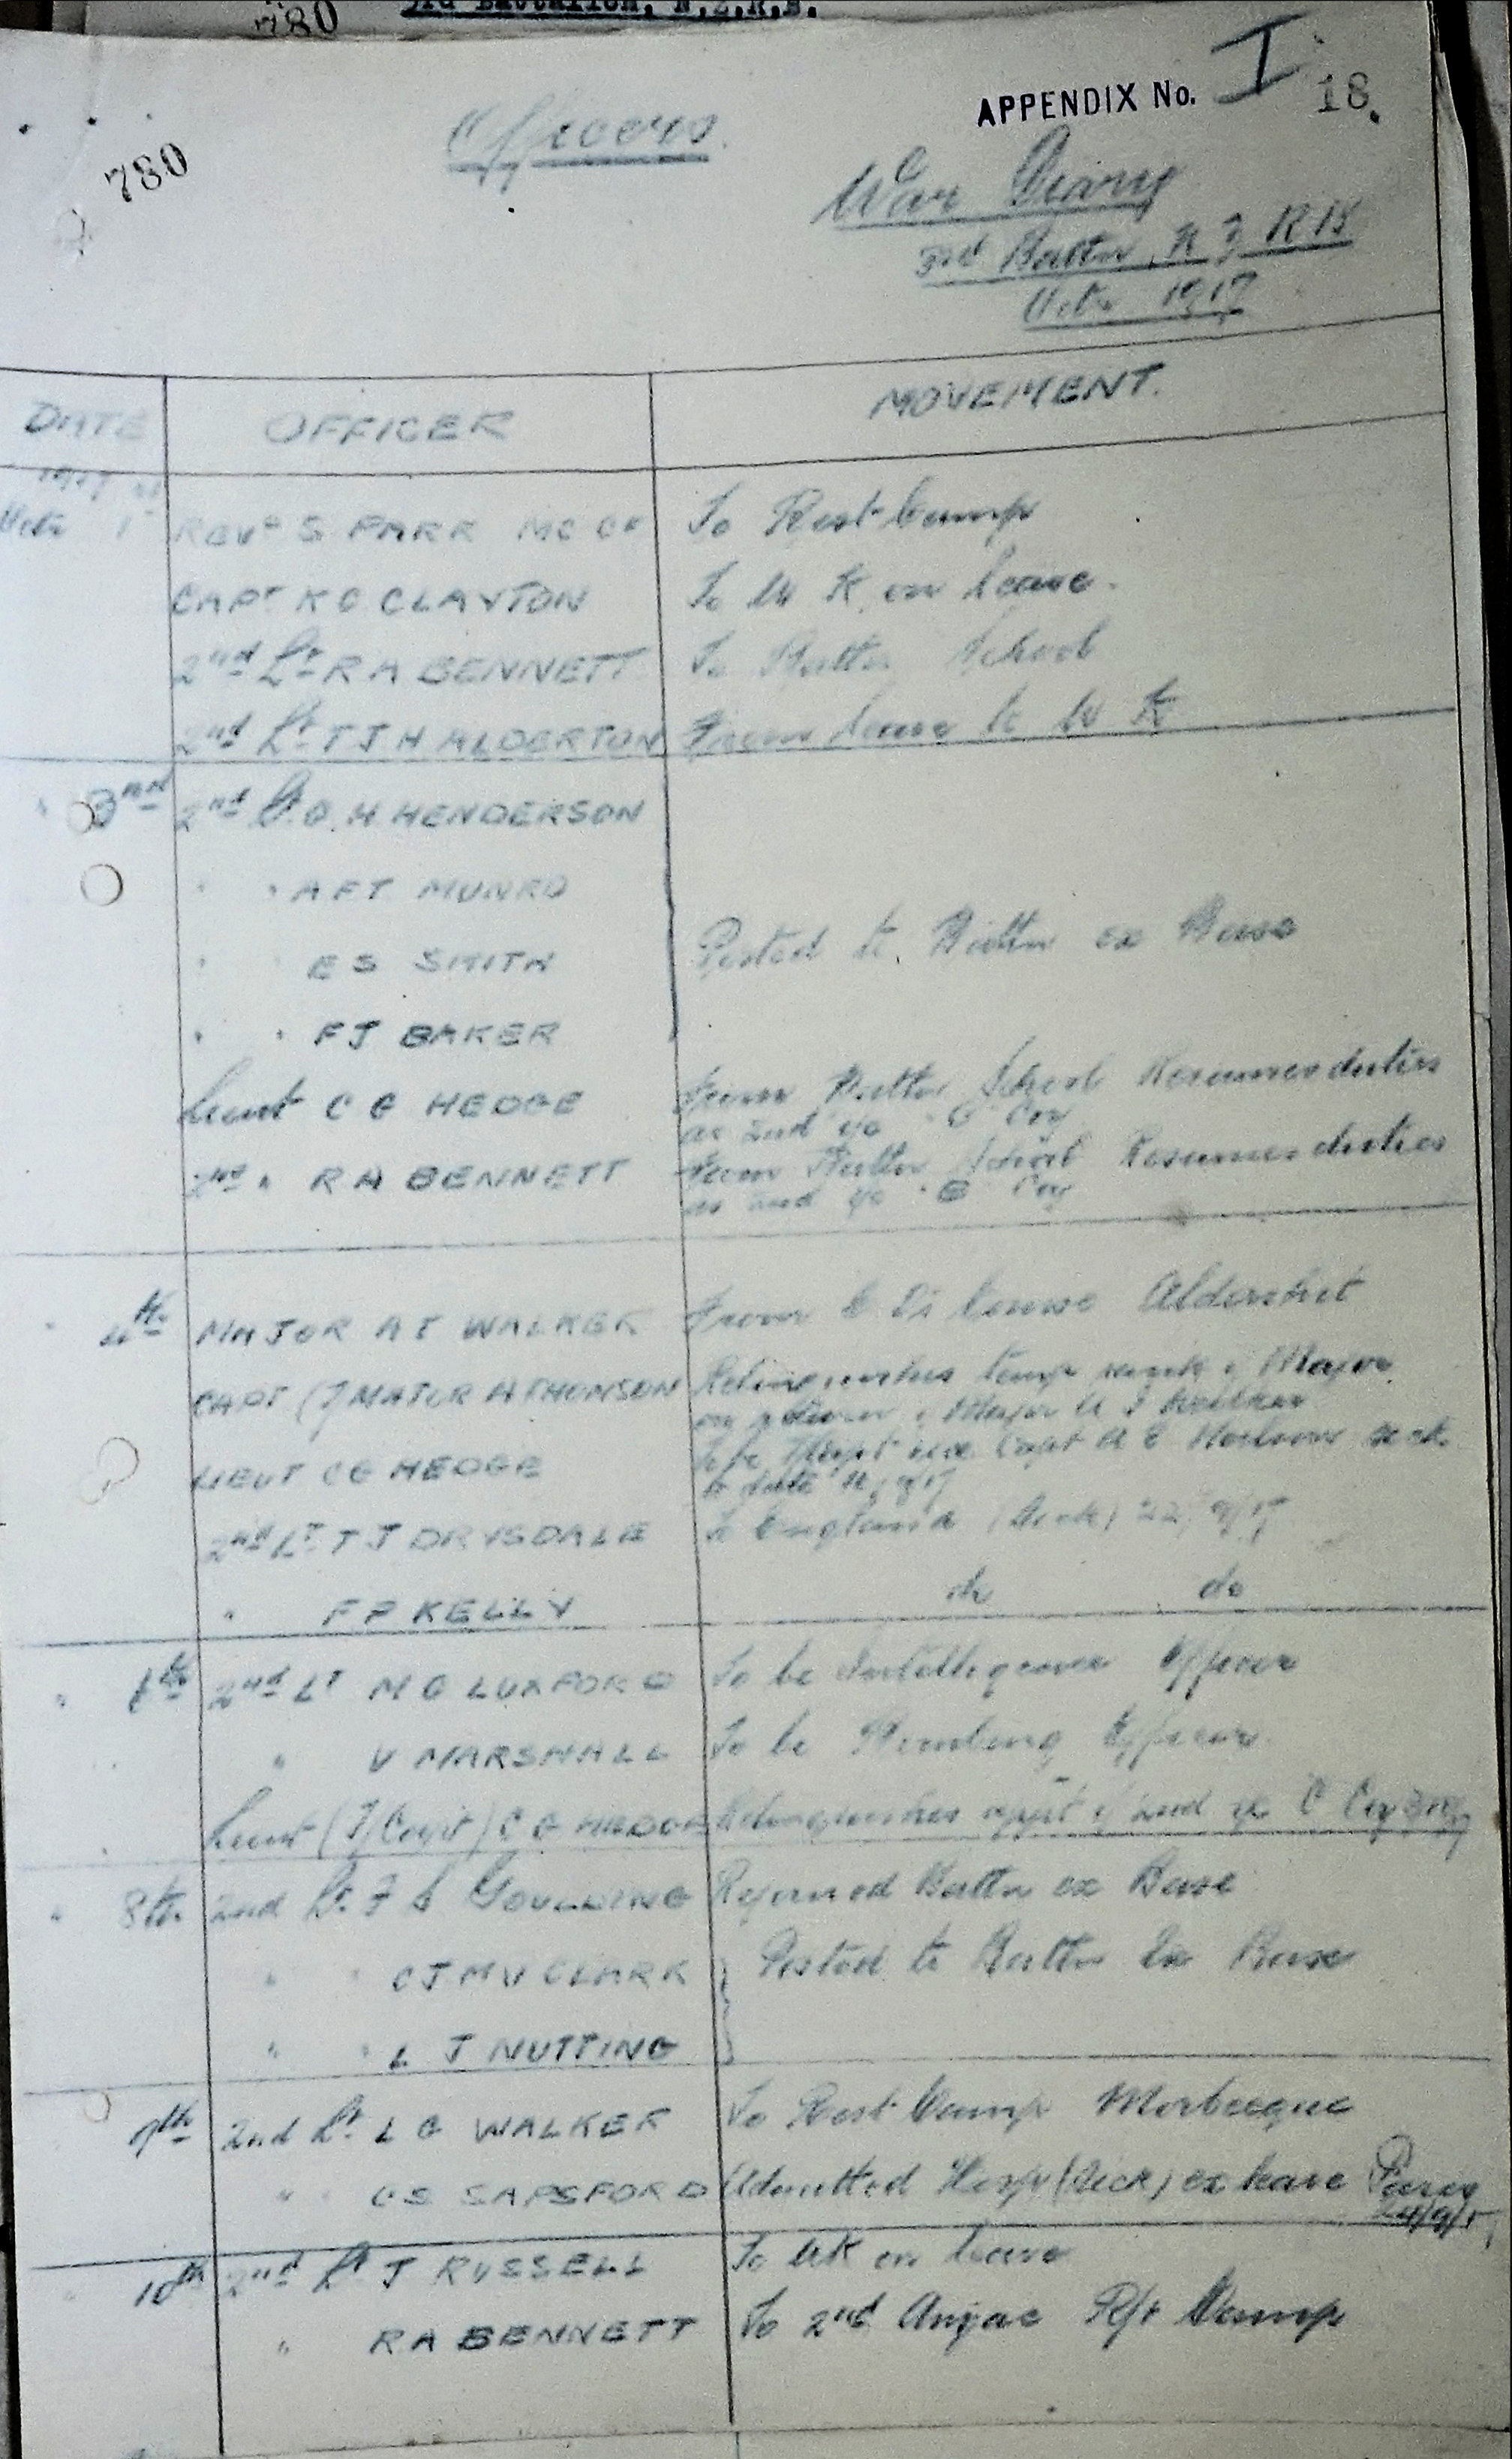 780
3rd Battalion, N.Z.R.B.
APPENDIX No. I 18.
780
Officers.
War Diary
3rd Battn N Z R B
Octr 1917
DATE OFFICER MOVEMENT.
1917
Octr 1st REVD S PARR MC CF To Rest Camp
CAPT K C CLAYTON To U K on leave.
2nd Lt R A BENNETT To Battn School
2nd Lt T J H ALDERTON From leave to U K
" 3rd 2nd Lt. G. H HENDERSON
" " A F T MUNRO
" " E S SMITH Posted to Battn ex Base
" " F J BAKER
Lieut C G HEDGE From Battn School Resumes duties
as 2nd i/c Coy
2nd " R A BENNETT From Battn School Resumes duties
as 2nd i/c B Coy
" 4th MAJOR A T WALKER From Course Aldershot
CAPT (T/MAJOR A THOMSON Relinquishes temp rank of Major
on return of Major Walker
LIEUT C G HEDGE To be T/Capt vice Capt
to date
2nd Lt T J DRYSDALE To England (Sick) 22/9/17
" F P KELLY do do
" 2nd Lt M G LUXFORD To be Intelligence Officer
" V MARSHALL To be Bombing Officer
Lieut (T/Capt) C G HEDGE Relinquishes appt of 2nd i/c C Coy
" 8th 2nd Lt. F S GOULDING Rejoined Battn ex Base
" " C J M V CLARK } Posted to Battn Ex Base
" " L J NUTTING
9th 2nd Lt. L G WALKER To Rest Camp Morbecque
" " C S SAPSFORD Admitted Hosp (Sick) ex leave Paris
24/9/17
10th 2nd Lt J RUSSELL To UK on leave
" R A BENNETT To 2nd Anzac Rft Camp